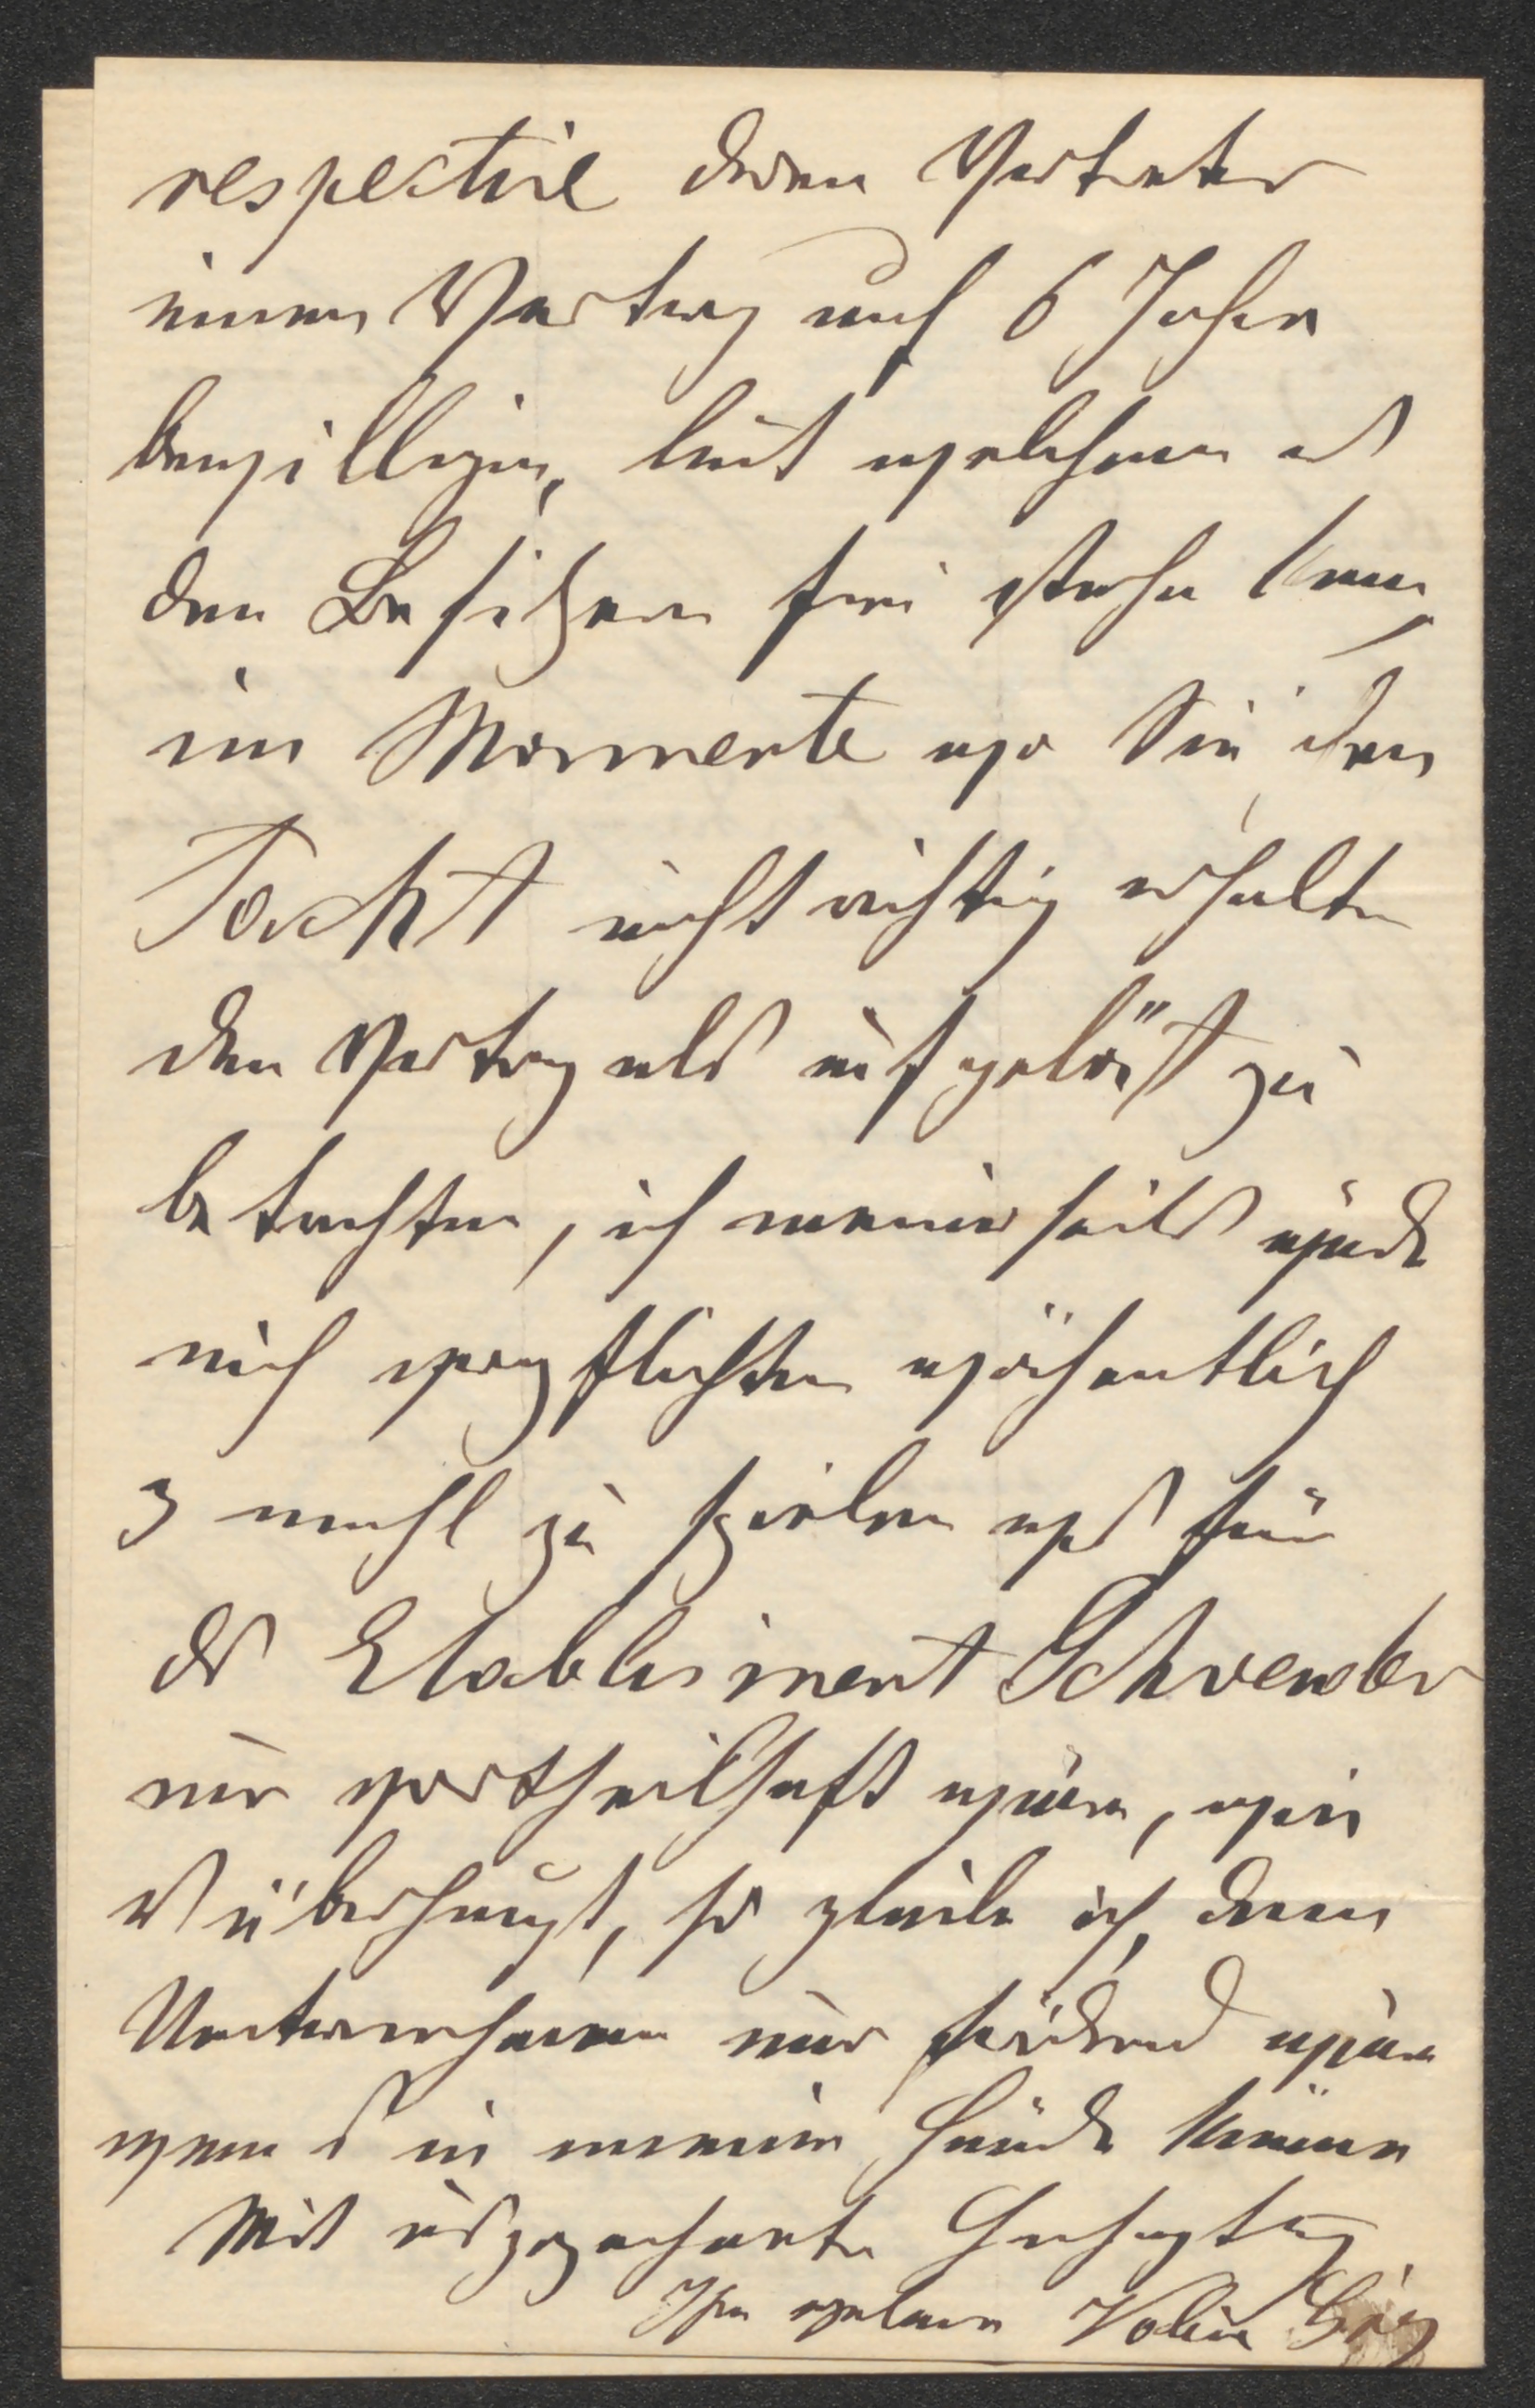 respective deren Vertreter
einen Vertrag auf 6 Jahre
bewilligen, laut welchem es
den Besitzern frei stehn kann,
im Momente wo Sie den
Pacht nicht richtig erhalten
den Vertrag als aufgelöst zu
betrachten, ich meinerseits würde
mich verpflichten wöchentlich
3 mahl zu spielen was für
das Etablisiment Schwender
nur vortheilhaft wäre, wie
es überhaupt, so glaube ich, dem
Unternehmen nur fördernd wäre
wenn es in meine Hände käme
Mit ausgezeichneter Hochachtung
Ihr